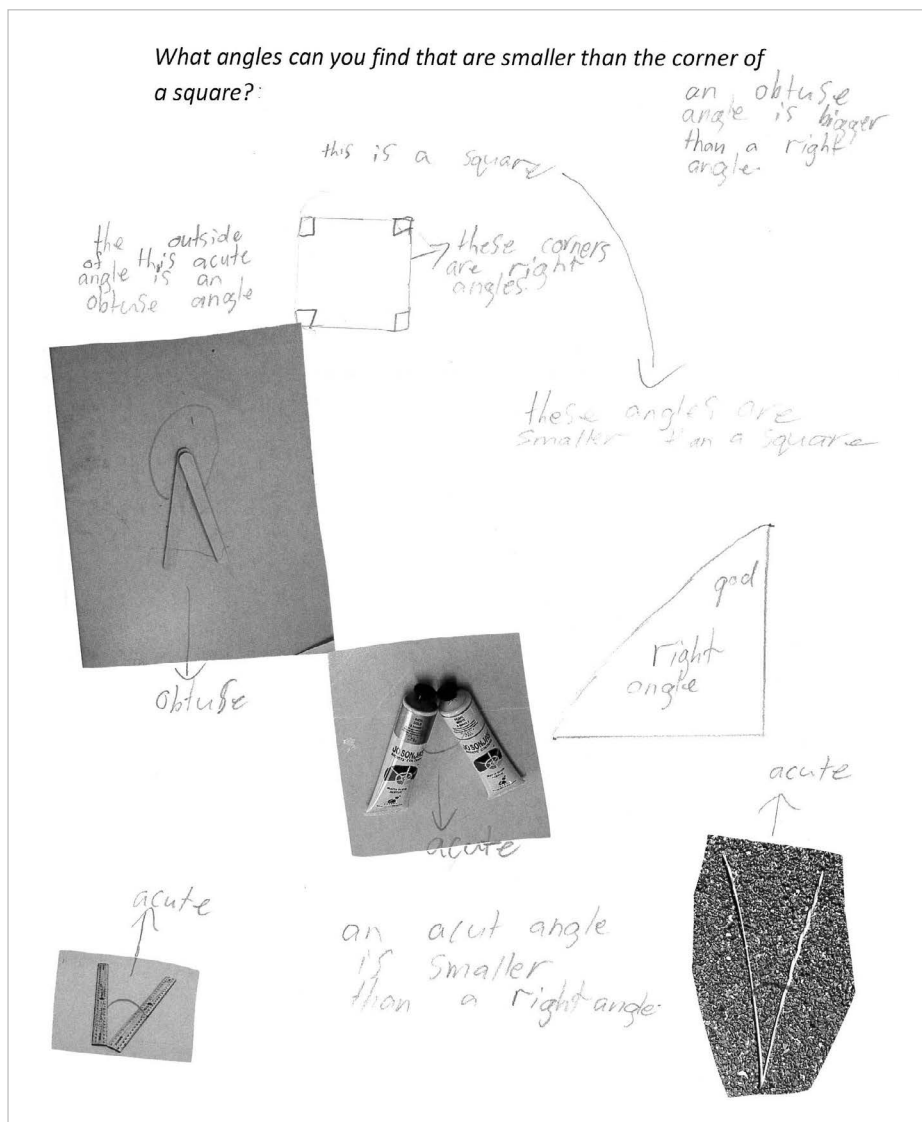 What angles can you find that are smaller than the corner of
a square?
an obtuse
angle is bigger
than a right
angle.
this is a square
the outside
of this acute
angle is an
obtuse angle
these corners
are right
angles.
these angles are
smaller than a square
obtuse
right
angle
JO SONJA'S
acute
acute
acute
an acut angle
is smaller
than a right angle